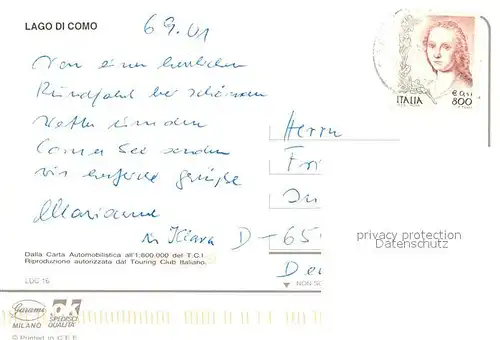 LAGO DI COMO
6 9. 01
ITALIA
€ 0,41
800
Von einer herrlichen
Rundfahrt bei schönem
Wetter um den
Comer See senden
wir herzliche Grüße
Marianne
Klara
Herrn
Fri
D-65
De
privacy protection
Datenschutz
Dalla Carta Automobilistica all'1:800.000 del T.C.I.
Riproduzione autorizzata dal Touring Club Italiano.
LDC 16
NON SC
Garami
MILANO
ok
SPEDISCI
QUALITÀ
© Printed in C.E.E.